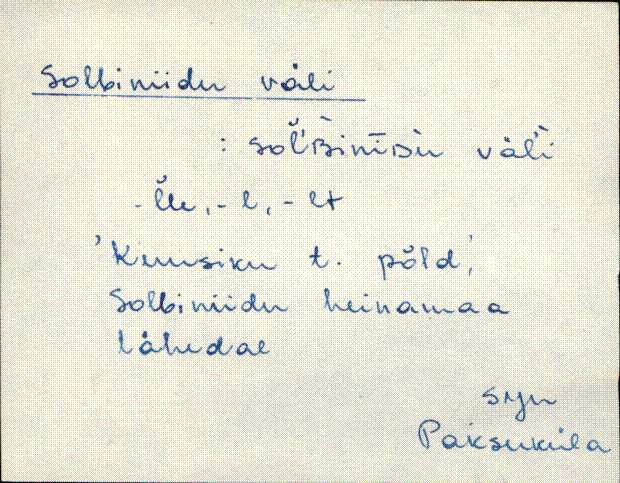 Solbiniidu väli
: sol̆'ʙinīᴅu väl̆'i
- l̆le, - l, - lt
'Kuusiku t. põld',
Solbiniidu heinamaa
lähedal
syn
Paksuküla